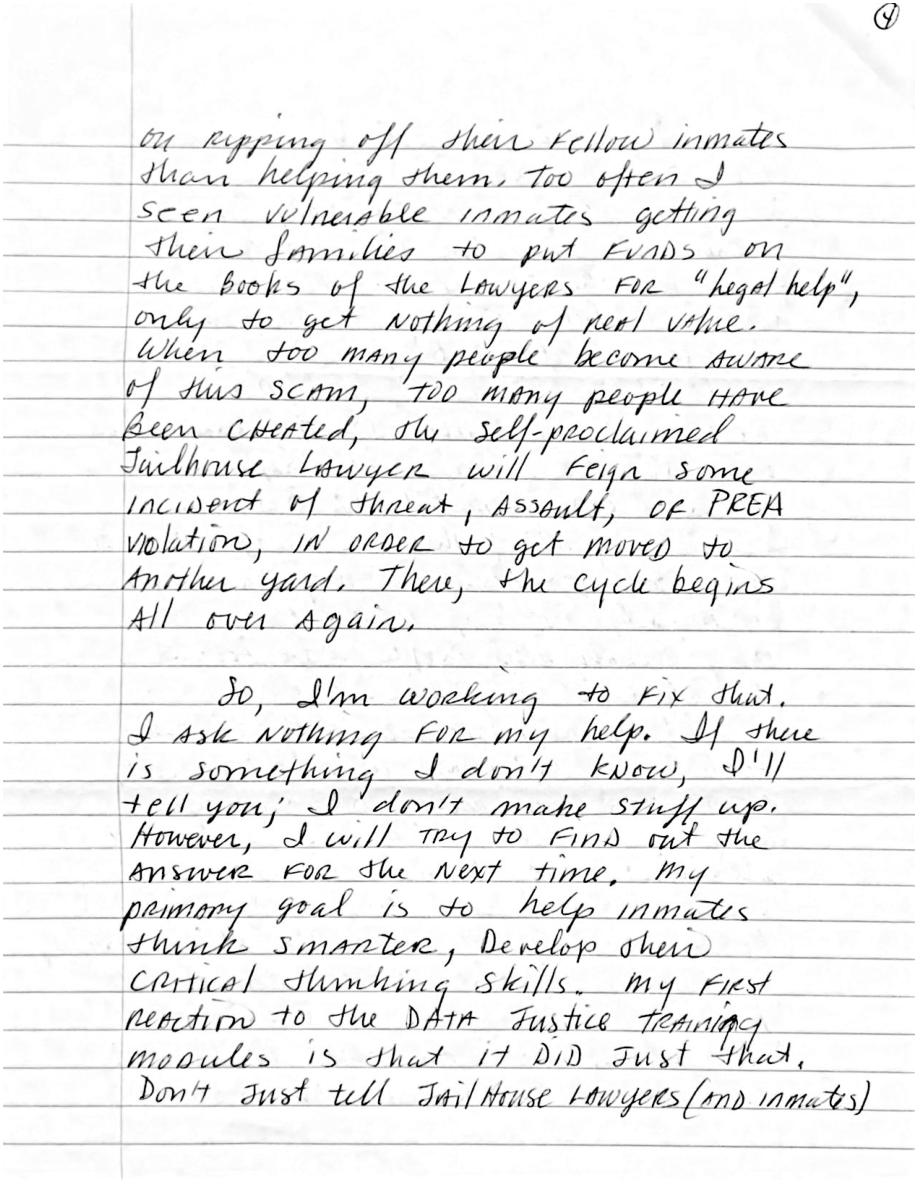 4
on ripping off their fellow inmates
than helping them. Too often I
seen vulnerable inmates getting
their families to put funds on
the books of the lawyers for "legal help",
only to get nothing of real value.
When too many people become aware
of this scam, too many people have
been cheated, the self-proclaimed
Jailhouse Lawyer will feign some
incident of threat, assault, or PREA
violation, in order to get moved to
another yard. There, the cycle begins
all over again.
So, I'm working to fix that.
I ask nothing for my help. If there
is something I don't know, I'll
tell you; I don't make stuff up.
However, I will try to find out the
answer for the next time. My
primary goal is to help inmates
think smarter, develop their
critical thinking skills. My first
reaction to the Data Justice training
modules is that it did just that.
Don't just tell JailHouse Lawyers (and inmates)